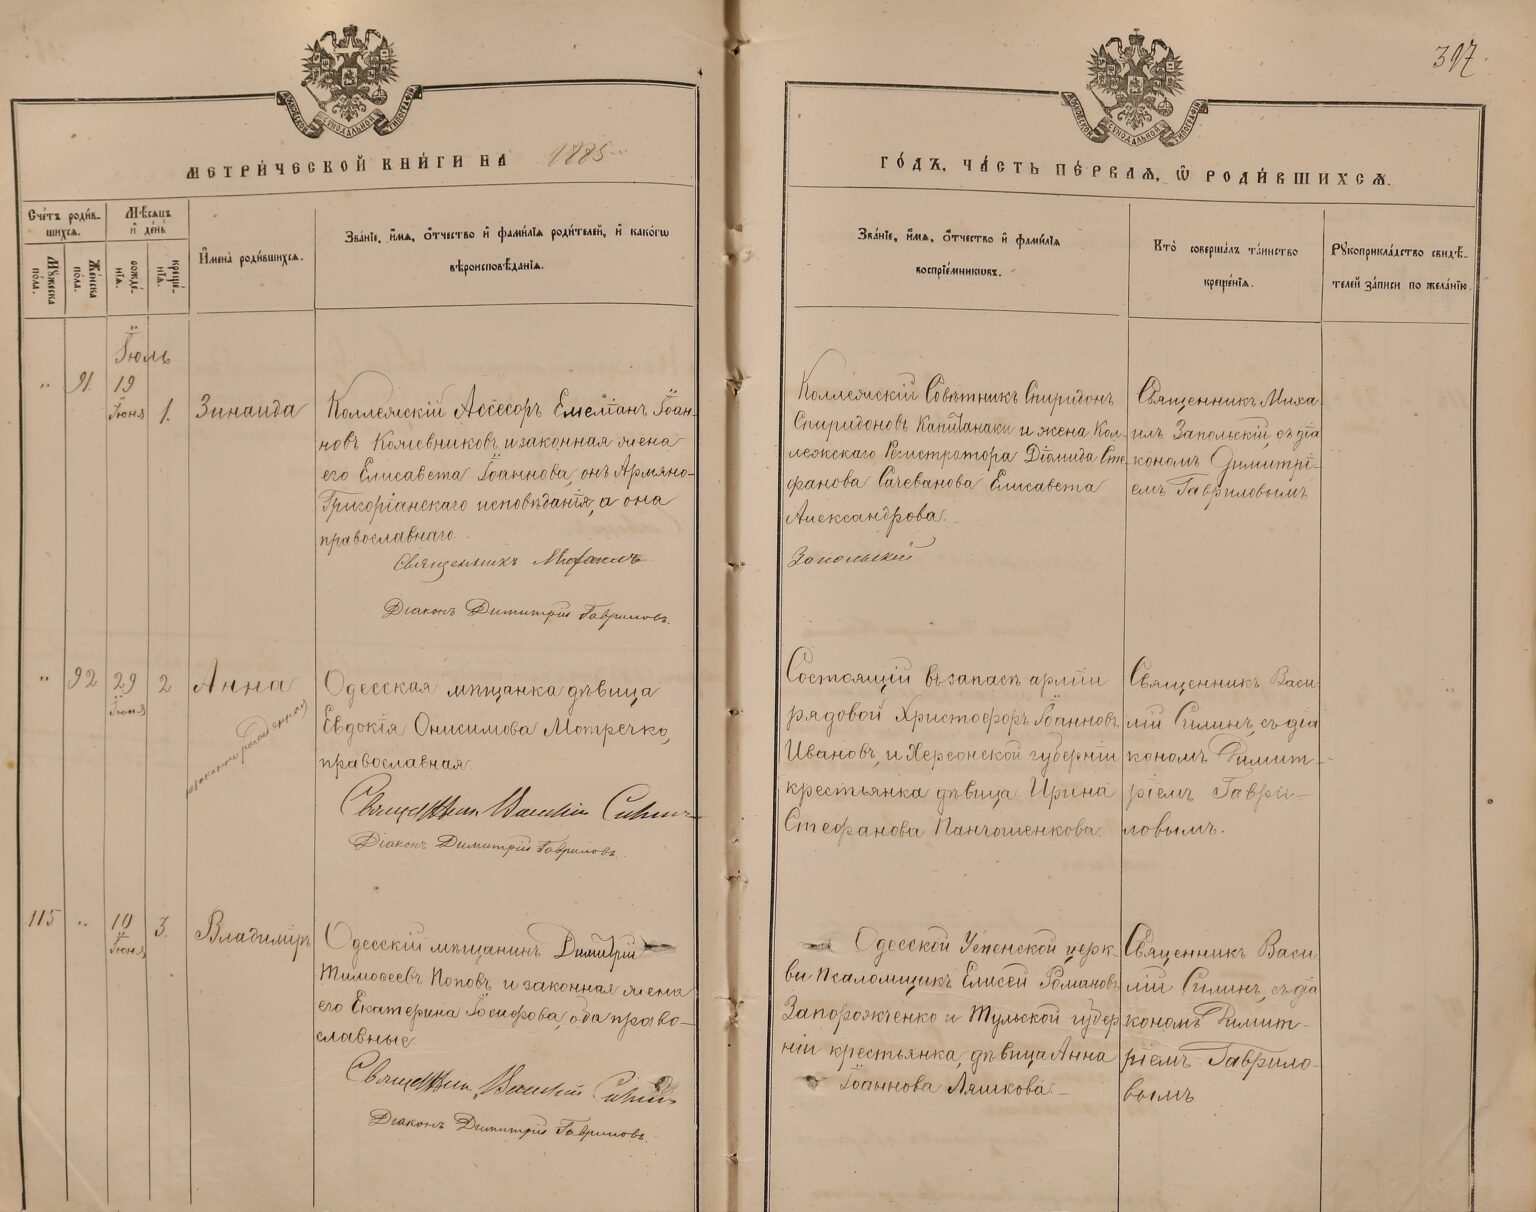 397.
МОСКОВСКОЙ СѴНОДАЛЬНОЙ ТИПОГРАФІИ
МОСКОВСКОЙ СѴНОДАЛЬНОЙ ТИПОГРАФІИ
МЕТРИ́ЧЕСКОЙ КНИ́ГИ НА 1885
ГО́ДЪ, ЧА́СТЬ ПЕ́РВАѦ, Ѡ҆ РОДИ́ВШИХСѦ.
Сче́тъ роди́в-
шихся.
Мѣ́сяцъ
и҆ де́нь
Му́жеска
по́ла.
Же́нска
по́ла.
рожде́-
нїя.
креще́-
нїя.
И҆мена̀ роди́вшихся.
Зва́нїе, и҆́мя, о҆́тчество и҆ фами́лїя роди́телей, и҆ како́гѡ
вѣроисповѣ́данїя.
Зва́нїе, и҆́мя, о҆́тчество и҆ фами́лїя
воспрїе́мниковъ.
Кто̀ соверша́лъ та́инство
креще́нїя.
Рукоприкла́дство свидѣ́-
телей за́писи по жела́нїю.
Іюль
" 91. 19 Іюня 1. Зинаида
Коллежскій Ассесоръ Емеліанъ Іоан-
новъ Кожевниковъ и законная жена
его Елисавета Іоаннова, онъ Армяно-
Григоріанскаго исповѣданія, а она
православнаго.
Священникъ Михаилъ
Діаконъ Димитрій Гавриловъ.
Коллежскій Совѣтникъ Спиридонъ
Спиридоновъ Капитанаки и жена Кол-
лежскаго Регистратора Діомида Сте-
фанова Сачеванова Елисавета
Александрова.
Запольскій
Священникъ Миха
илъ Запольскій, съ діа
кономъ Димитрі-
емъ Гавриловымъ
" 92 29 Іюня 2 Анна
незаконнорожденная
Одесская мѣщанка дѣвица
Евдокія Онисимова Мотречко,
православная.
Священникъ Василій Силинъ
Діаконъ Димитрій Гавриловъ.
Состоящій въ запасѣ арміи
рядовой Христофоръ Іоанновъ
Ивановъ, и Херсонской губерніи
крестьянка дѣвица Ирина
Стефанова Панчошенкова.
Священникъ Васи
лій Силинъ, съ діа
кономъ Димит-
ріемъ Гаври-
ловымъ.
115 " 10 Іюня 3. Владиміръ
Одесскій мѣщанинъ Димитрій
Тимофеевъ Поповъ и законная жена
его Екатерина Іосифова, оба право-
славные
Священникъ Василій Силинъ
Діаконъ Димитрій Гавриловъ.
Одесской Успенской церк-
ви псаломщикъ Елисей Романовъ
Запорожченко и Тульской губер
ніи крестьянка, дѣвица Анна
Іоаннова Ляшкова.
Священникъ Васи
лій Силинъ, съ діа
кономъ Димит-
ріемъ Гаврило-
вымъ